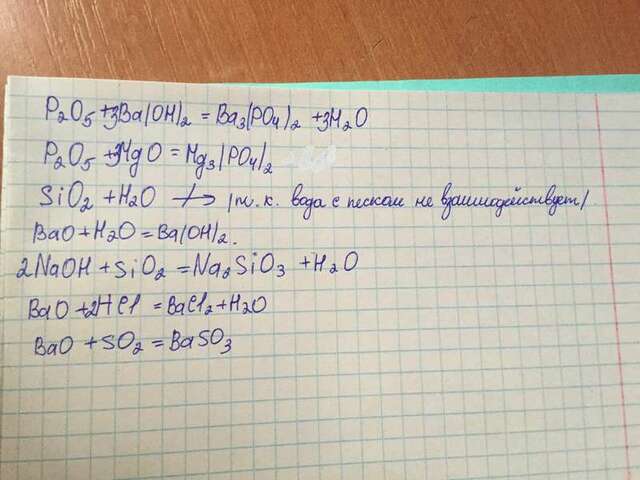 P2O5 +3Ba(OH)2 = Ba3(PO4)2 +3H2O
P2O5 +3MgO = Mg3(PO4)2
SiO2 +H2O ↛ (т.к. вода с песком не взаимодействует)
BaO+H2O=Ba(OH)2.
2NaOH +SiO2 =Na2SiO3 +H2O
BaO +2HCl =BaCl2+H2O
BaO +SO2 =BaSO3